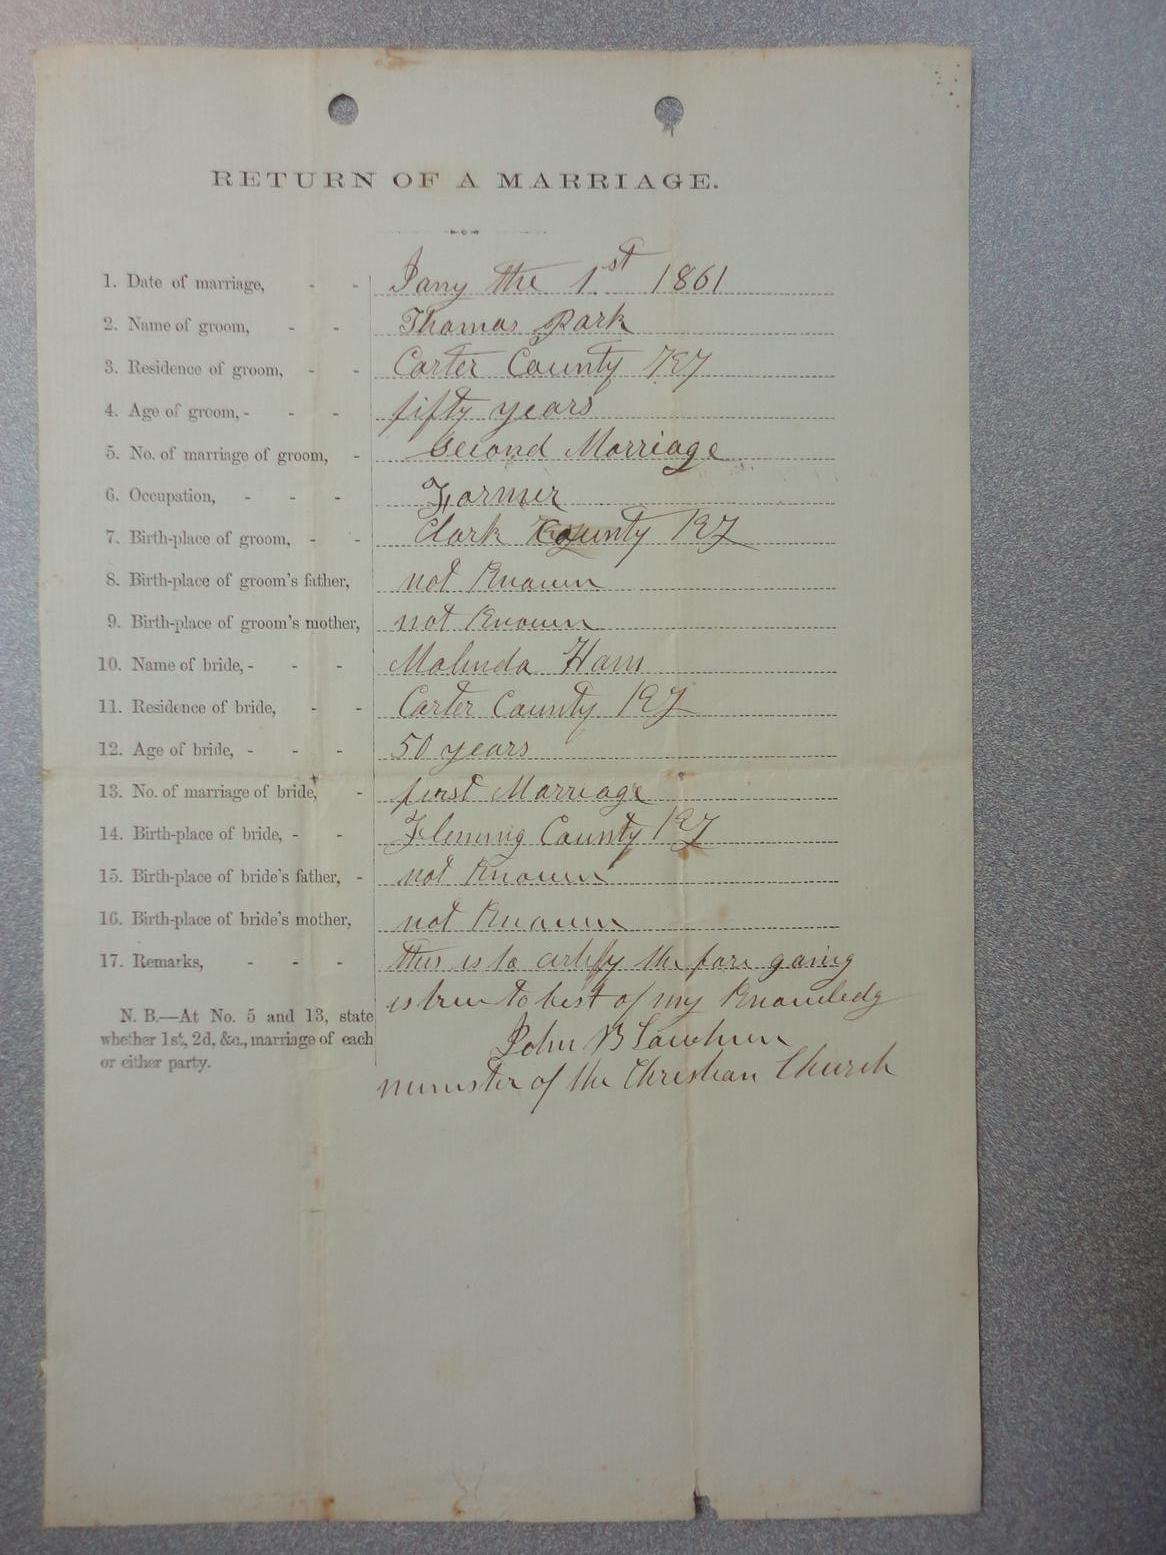 RETURN OF A MARRIAGE.
1. Date of marriage, - - Jany the 1st 1861
2. Name of groom, - - Thomas Park
3. Residence of groom, - - Carter County KY
4. Age of groom, - - - fifty years
5. No. of marriage of groom, - Second Marriage
6. Occupation, - - - Farmer
7. Birth-place of groom, - - Clark County KY
8. Birth-place of groom's father, not Known
9. Birth-place of groom's mother, not Known
10. Name of bride, - - - Malinda Ham
11. Residence of bride, - - Carter County KY
12. Age of bride, - - - 50 years
13. No. of marriage of bride, - first Marriage
14. Birth-place of bride, - - Fleming County KY
15. Birth-place of bride's father, - not Known
16. Birth-place of bride's mother, not Known
17. Remarks, - - - this is to certify the fore going
is true to best of my Knowledg
John B Lawhun
minister of the Christian Church
N. B.—At No. 5 and 13, state
whether 1st, 2d, &c., marriage of each
or either party.